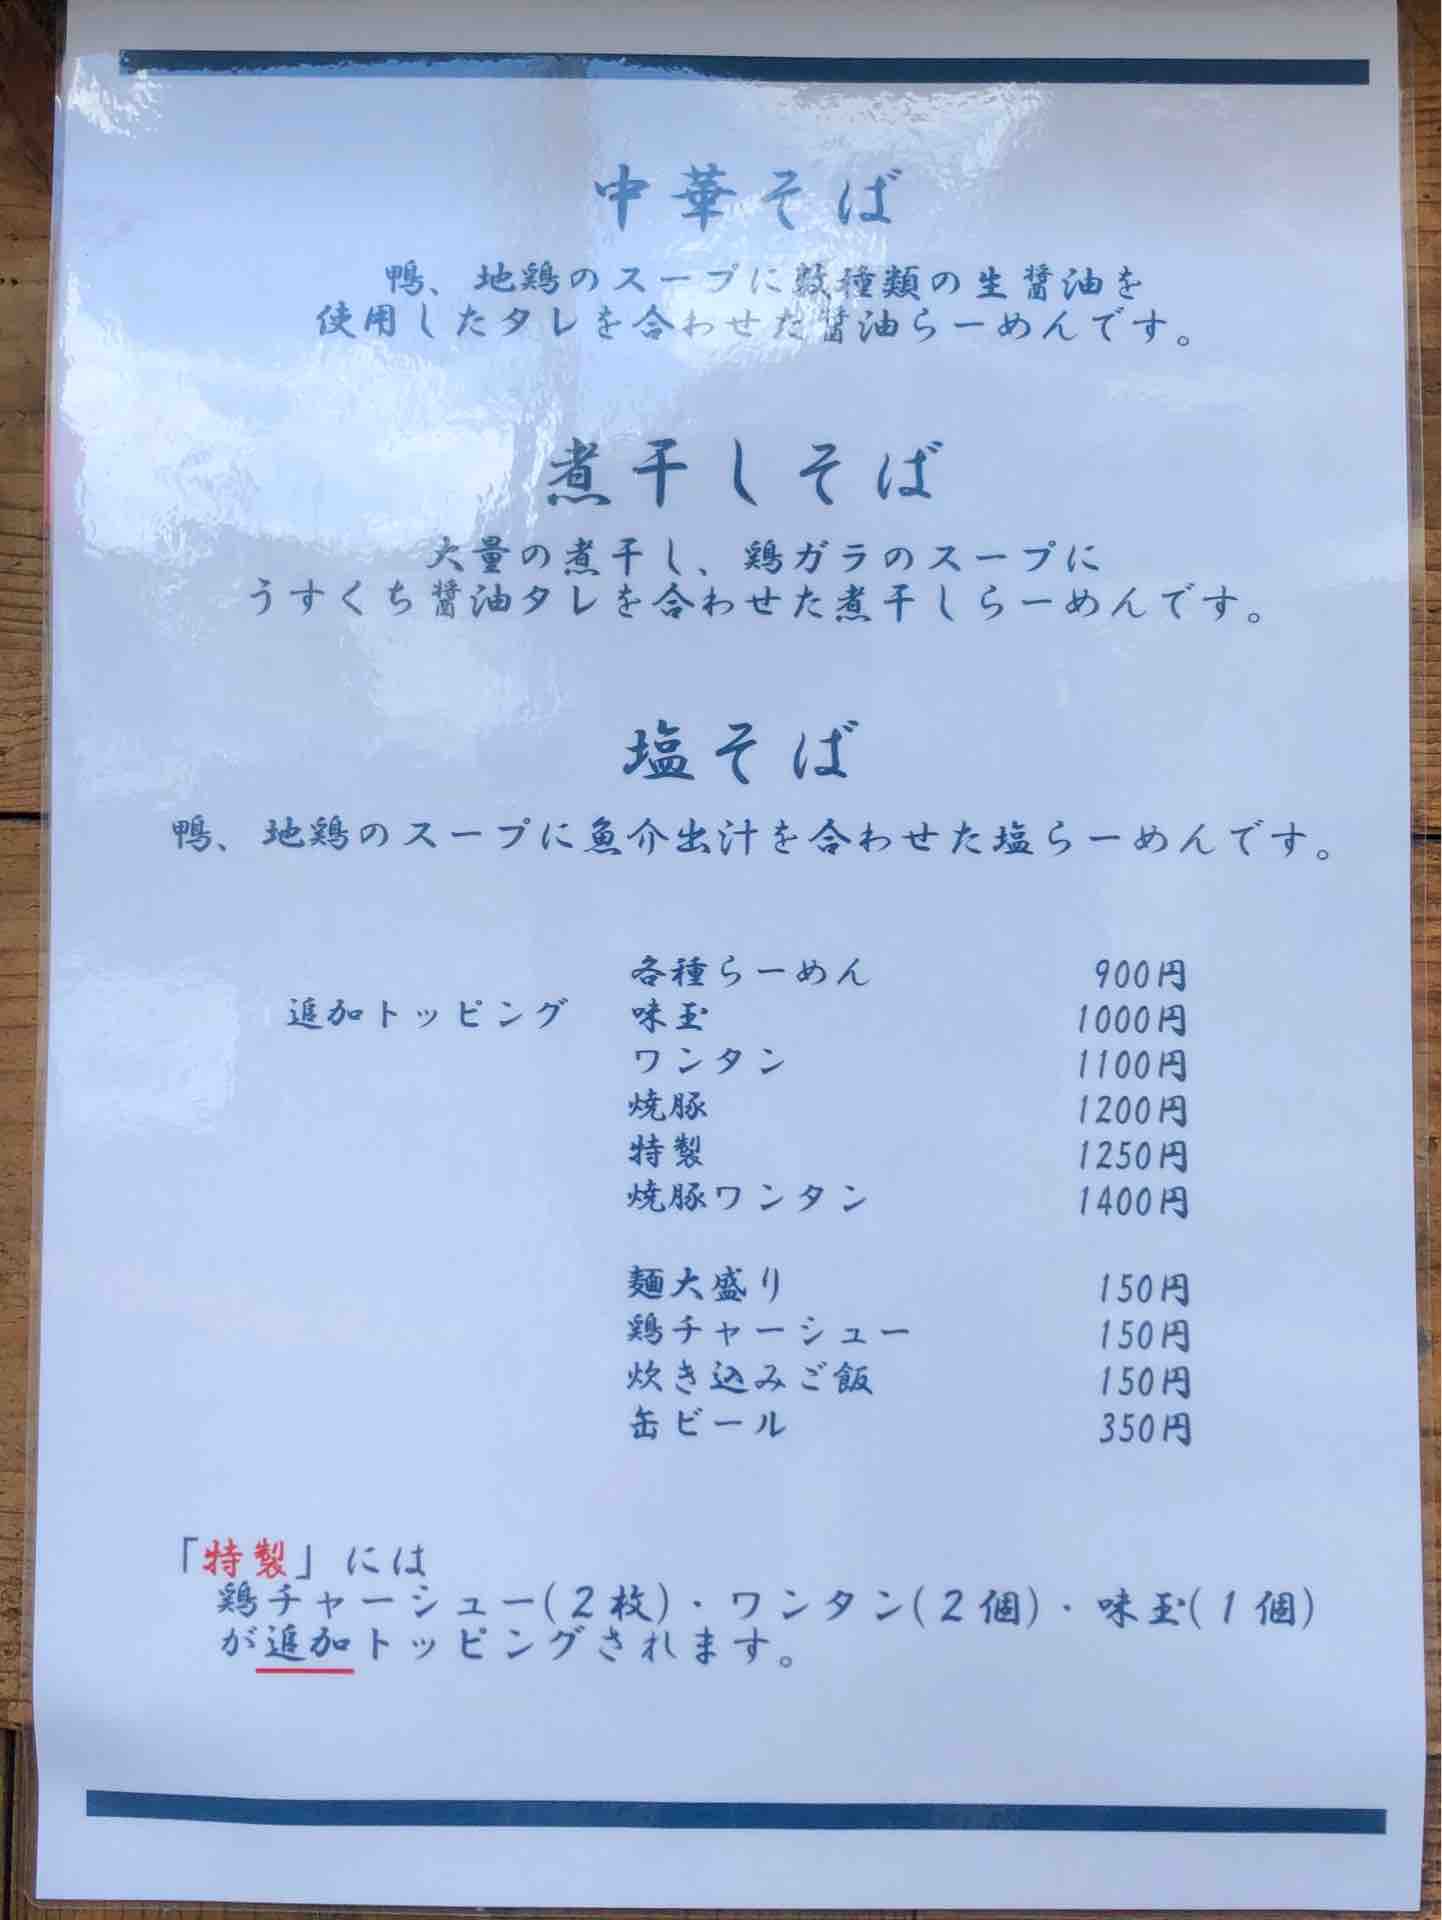 中華そば
鴨、地鶏のスープに数種類の生醤油を
使用したタレを合わせた醤油らーめんです。
煮干しそば
大量の煮干し、鶏ガラのスープに
うすくち醤油タレを合わせた煮干しらーめんです。
塩そば
鴨、地鶏のスープに魚介出汁を合わせた塩らーめんです。
各種らーめん 900円
追加トッピング 味玉 1000円
ワンタン 1100円
焼豚 1200円
特製 1250円
焼豚ワンタン 1400円
麺大盛り 150円
鶏チャーシュー 150円
炊き込みご飯 150円
缶ビール 350円
「特製」には
鶏チャーシュー(2枚)・ワンタン(2個)・味玉(1個)
が追加トッピングされます。